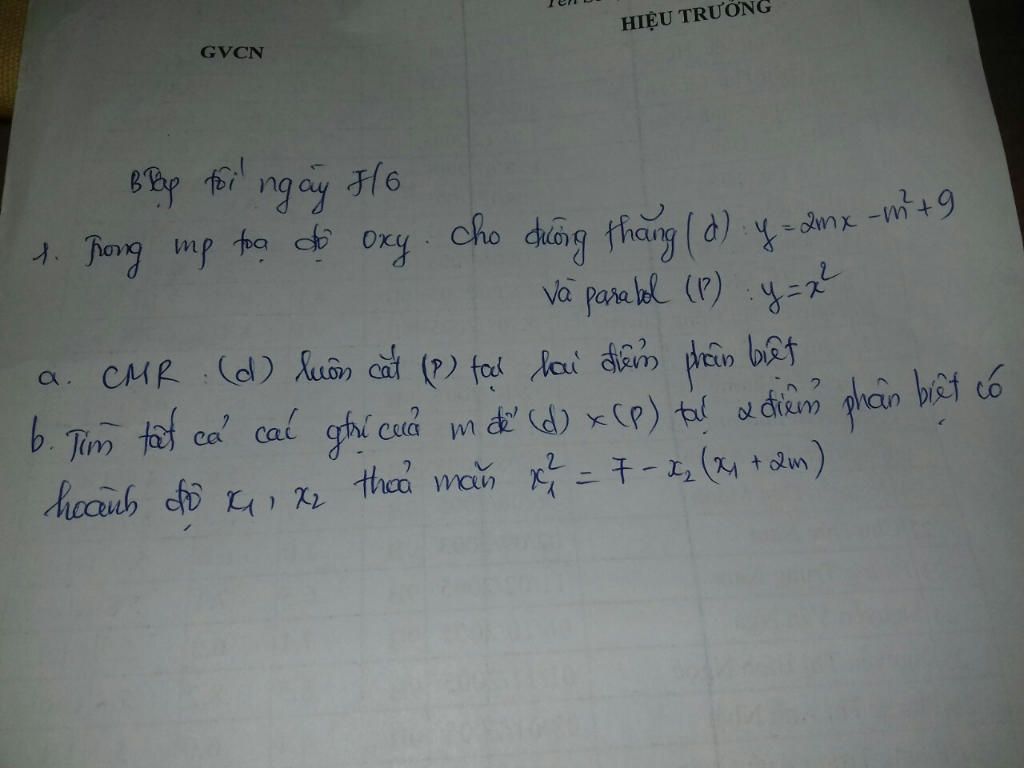 HIỆU TRƯỞNG
GVCN
BTập tối ngày 7/6
1. Trong mp toạ độ oxy. Cho đường thẳng (d): y = 2mx - m² + 9
Và parabol (P) : y = x²
a. CMR : (d) luôn cắt (P) tại hai điểm phân biệt
b. Tìm tất cả các gtrị của m để (d) x (P) tại 2 điểm phân biệt có
hoành độ x₁, x₂ thoả mãn x₁² = 7 - x₂ (x₁ + 2m)